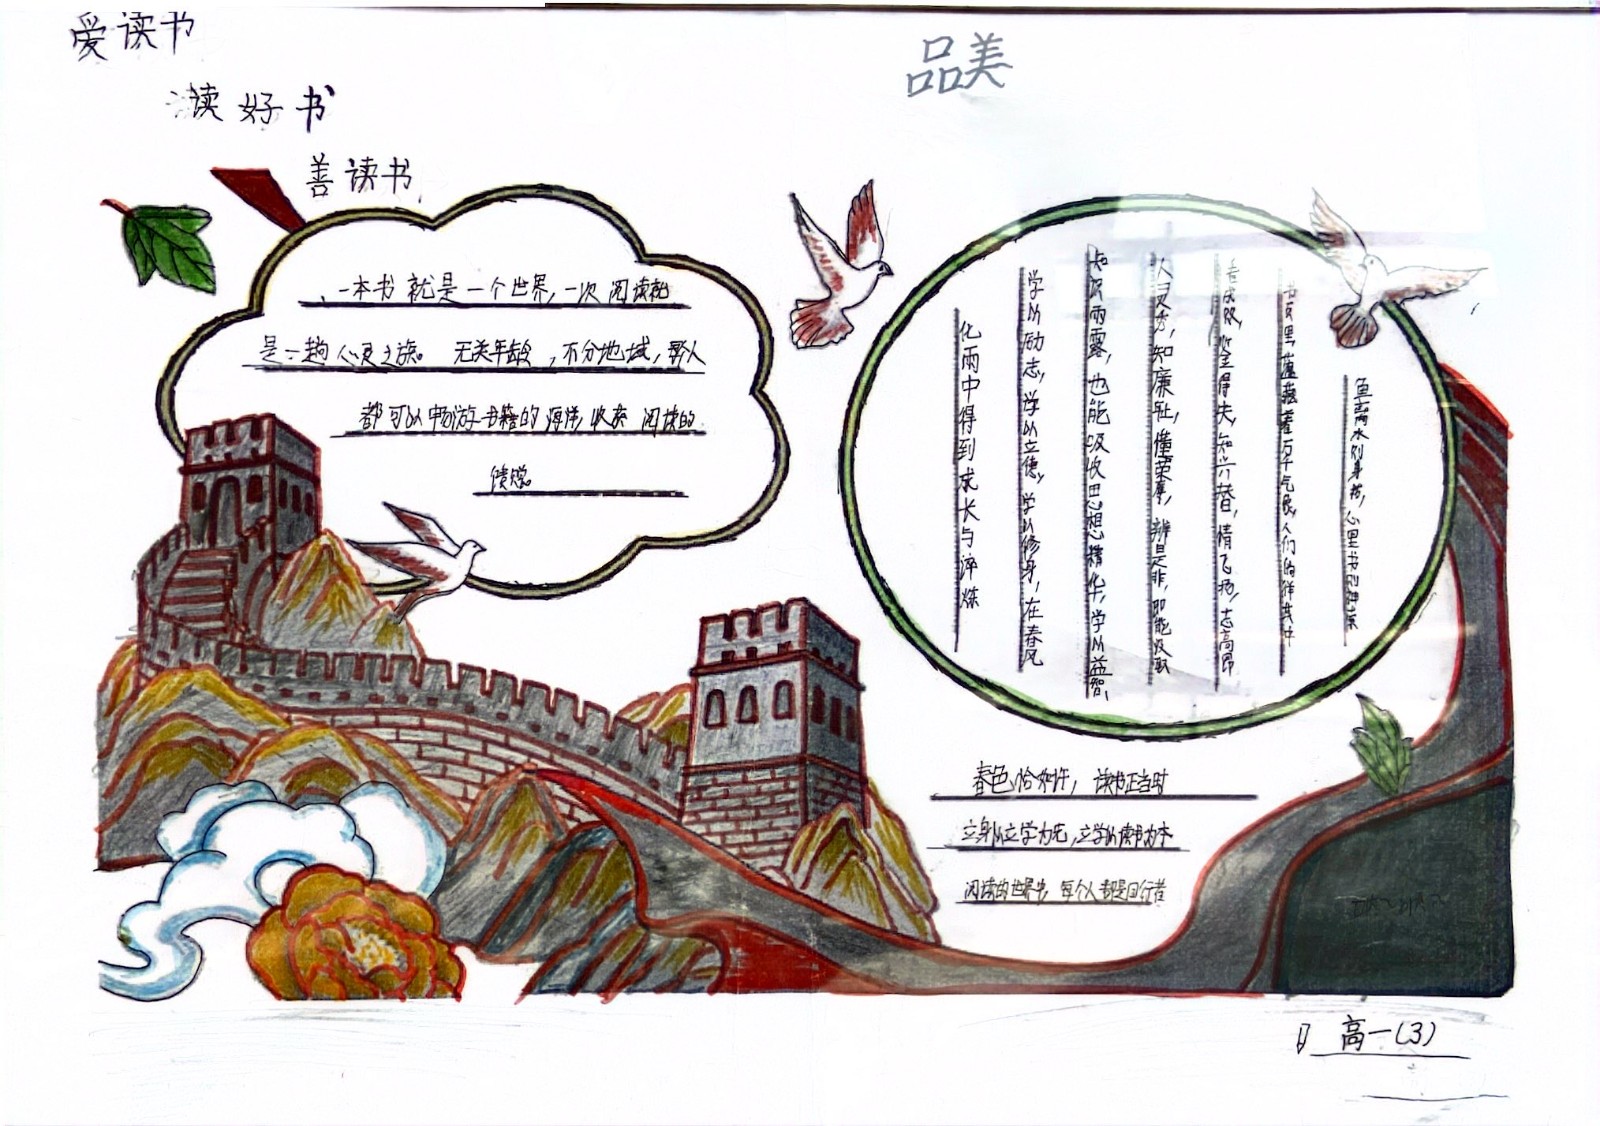 爱读书
读好书
善读书
品美
一本书就是一个世界,一次阅读就
是一趟心灵之旅。无关年龄,不分地域,每个人
都可以畅游书籍的海洋,收获阅读的
馈赠。
书页里蕴藏着万千气象,人们徜徉其中
看成败,鉴得失,知兴替,情飞扬,志高昂
人灵秀,知廉耻,懂荣辱,辨是非,即能汲取
知识雨露,也能吸收思想精华,学以益智,
学以励志,学以立德,学以修身,在春风
化雨中得到成长与淬炼
春色恰如许,读书正当时
立身以立学为先,立学以读书为本
阅读的世界中,每个人都是同行者
高一(3)